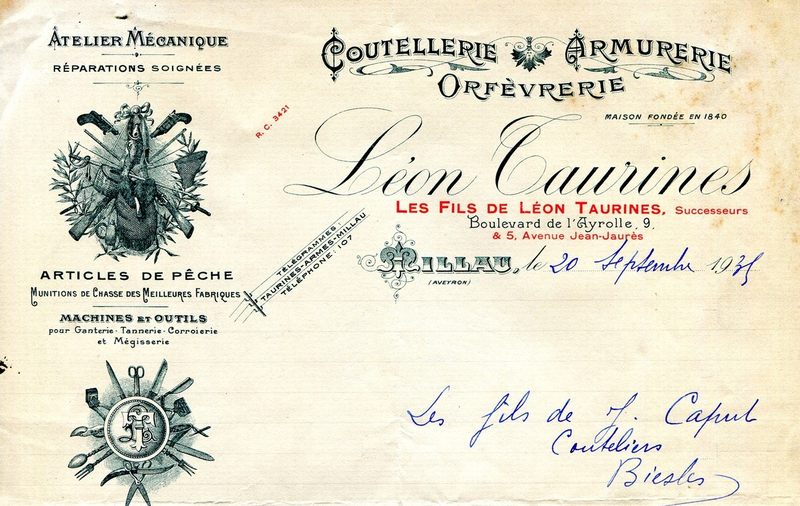 ATELIER MÉCANIQUE
RÉPARATIONS SOIGNÉES
COUTELLERIE ARMURERIE
ORFÈVRERIE
MAISON FONDÉE EN 1840
R. C. 3421
Léon Taurines
LES FILS DE LÉON TAURINES, Successeurs
Boulevard de l'Ayrolle, 9,
& 5, Avenue Jean-Jaurès
TÉLÉGRAMMES:
TAURINES-ARMES-MILLAU
TÉLÉPHONE: 107
MILLAU, le 20 Septembre 193
(AVEYRON)
ARTICLES DE PÊCHE
MUNITIONS DE CHASSE DES MEILLEURES FABRIQUES
MACHINES ET OUTILS
pour Ganterie-Tannerie-Corroierie
et Mégisserie
Les fils de J. Caput
Couteliers
Biesles